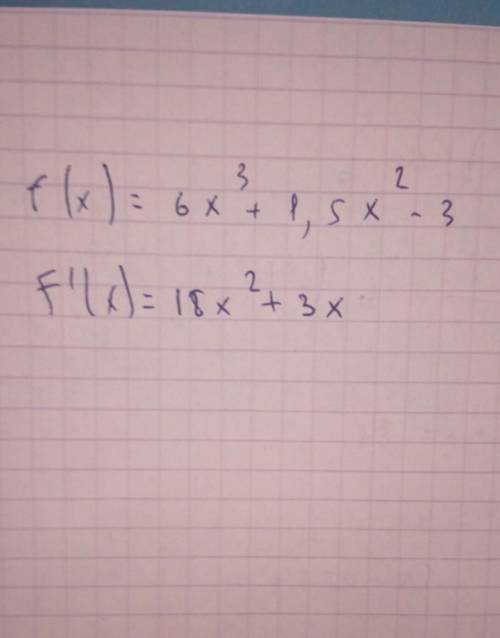 f(x) = 6x³ + 1,5x² - 3
F'(x) = 18x² + 3x